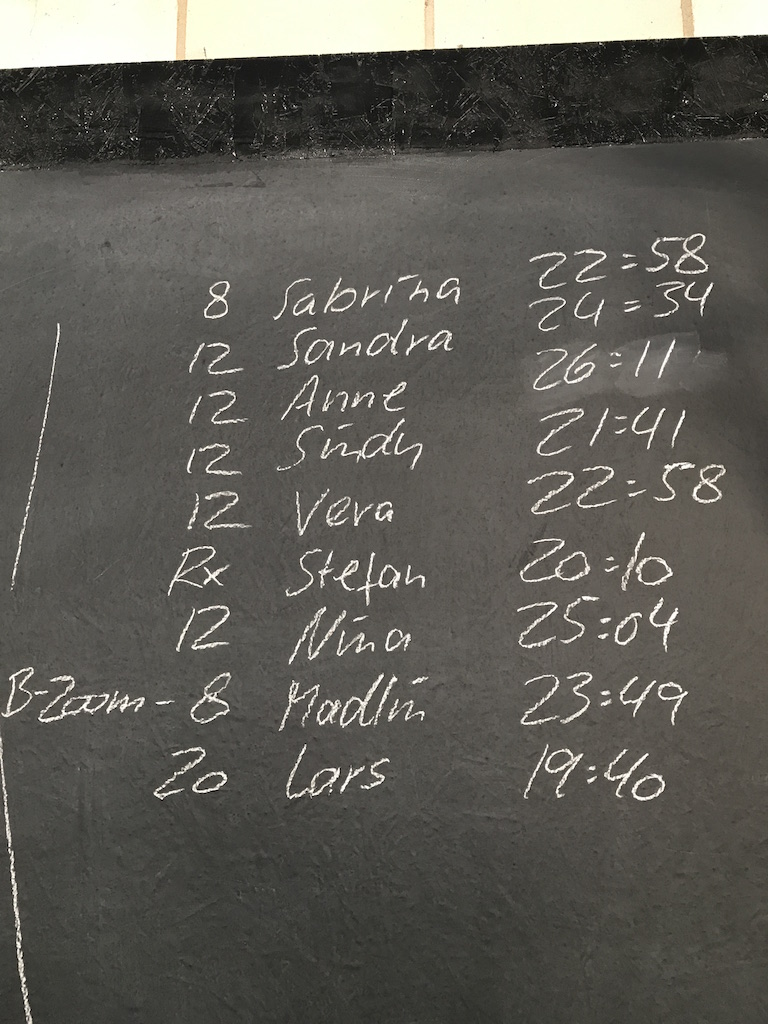 8 Sabrina 22:58
12 Sandra 24:34
12 Anne 26:11
12 Sindy 21:41
12 Vera 22:58
Rx Stefan 20:10
12 Nina 25:04
B-Zoom - 8 Madlin 23:49
20 Lars 19:40